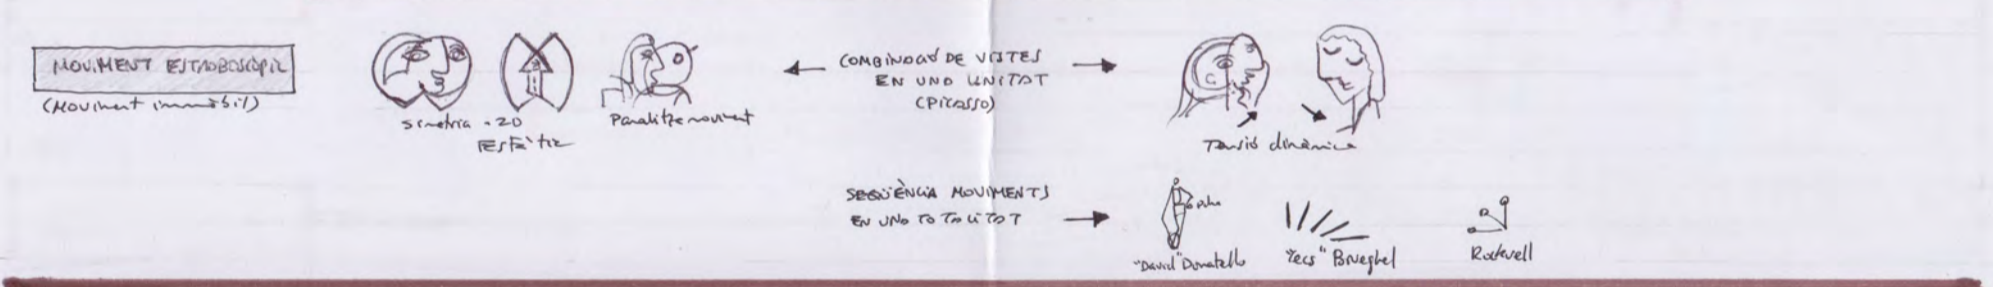 MOVIMENT ESTROBOSCÒPIC
(Moviment immòbil)
simetria + 2D
ESTÀTIC
Paralitza moviment
COMBINACIÓ DE VISTES
EN UNA UNITAT
(PICASSO)
Tensió dinàmica
SEQÜÈNCIA MOVIMENTS
EN UNA TOTALITAT
"David" Donatello
"Cecs" Brueghel
Rockwell